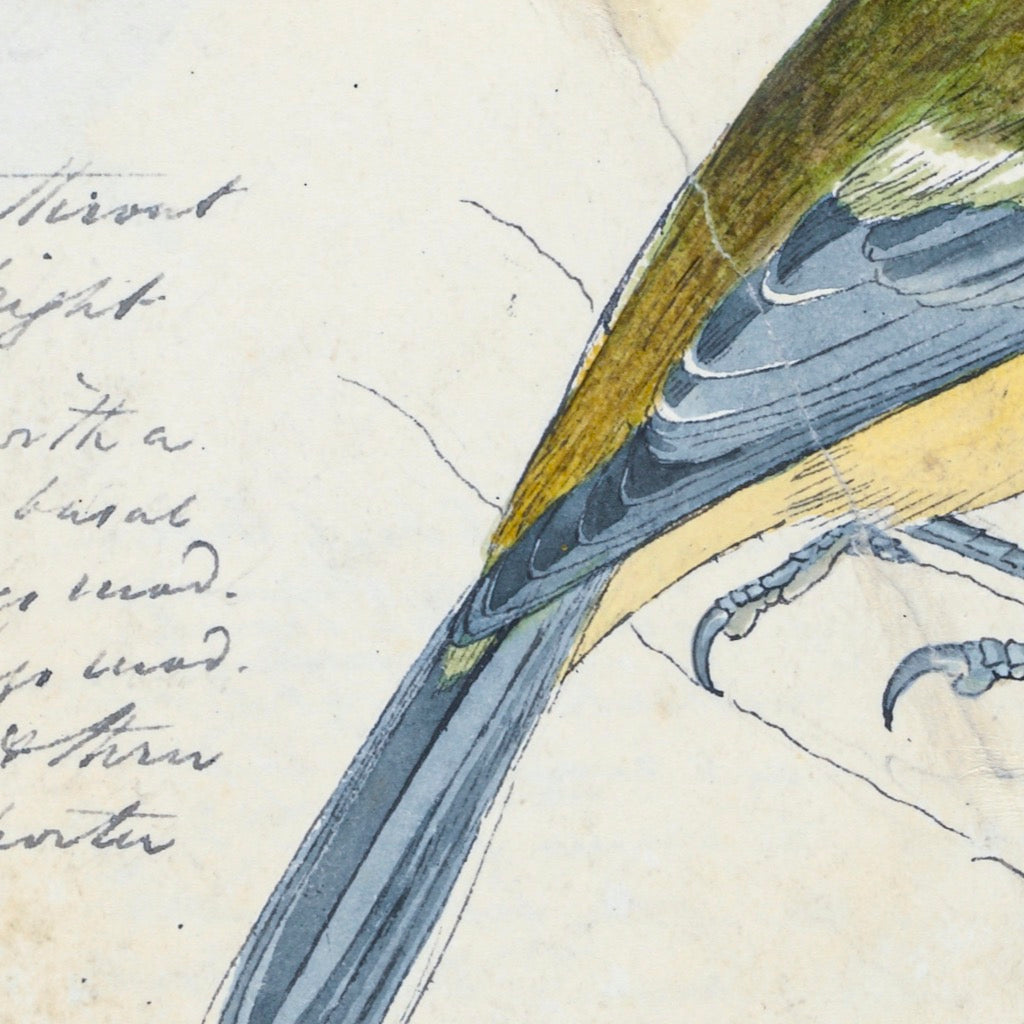 throat
eight
with a
basal
mod.
mod.
& thru
horter